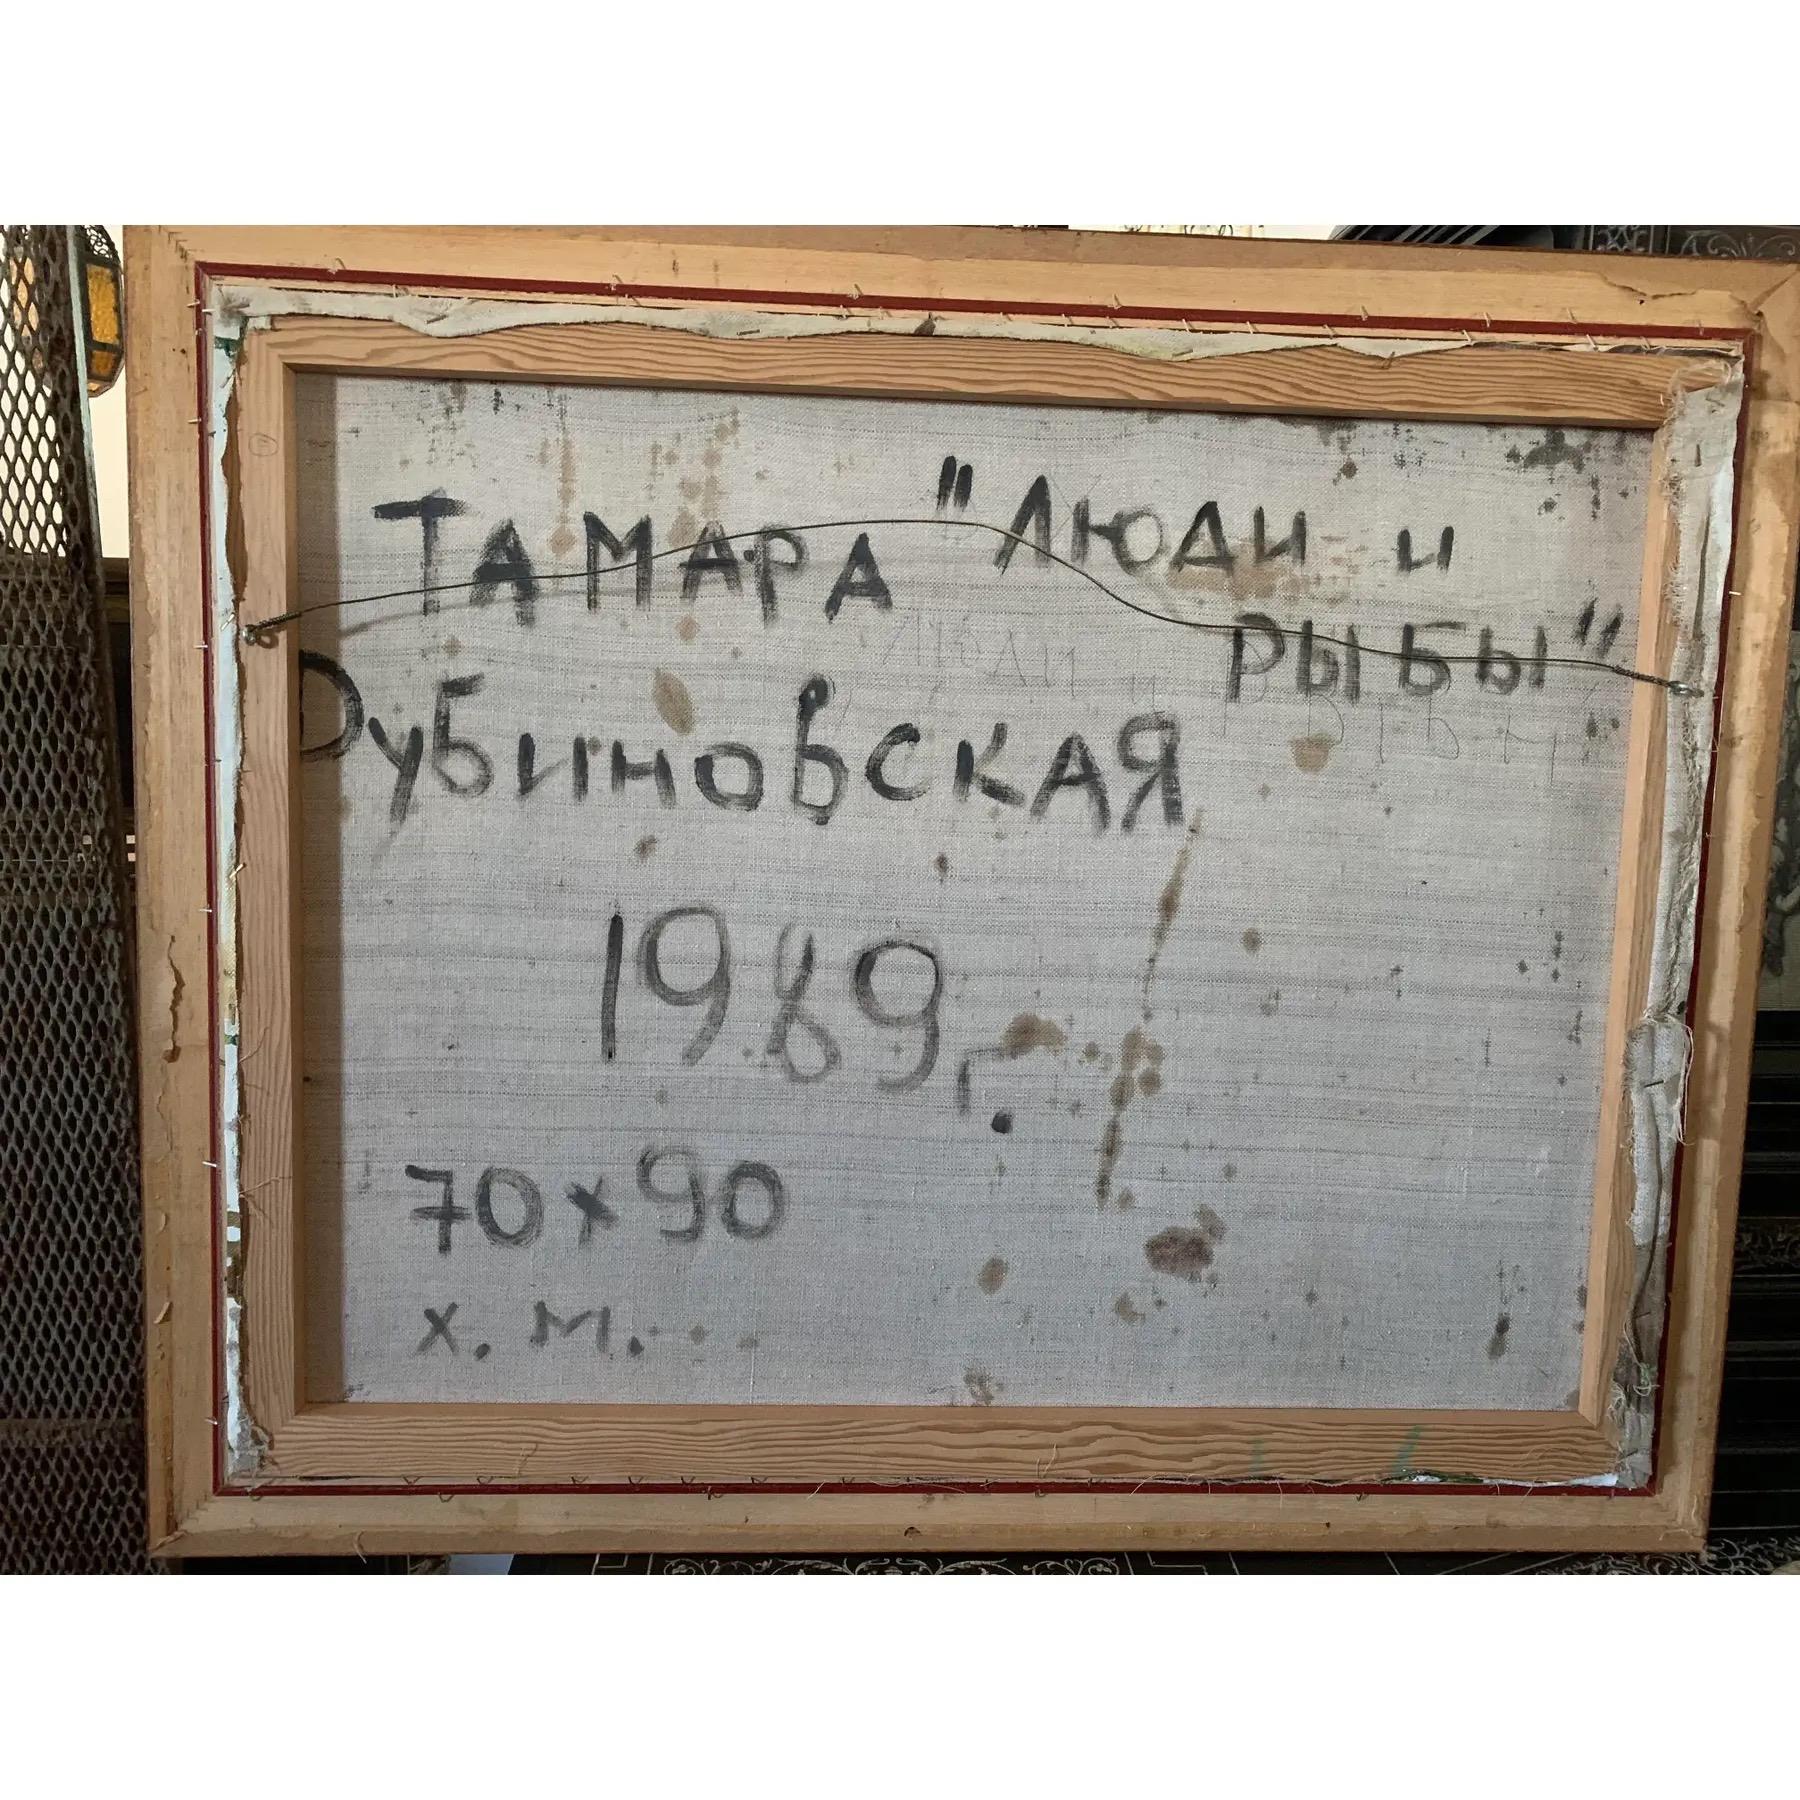 ТАМАРА "ЛЮДИ и
РЫБЫ"
Дубиновская
ЛЮДИ И РЫБЫ
1989 г.
70 x 90
х. м.